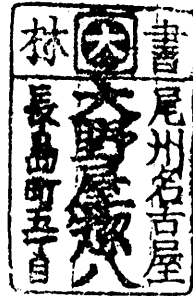 書林
大
尾州名古屋
大野屋惣八
長島町五丁目